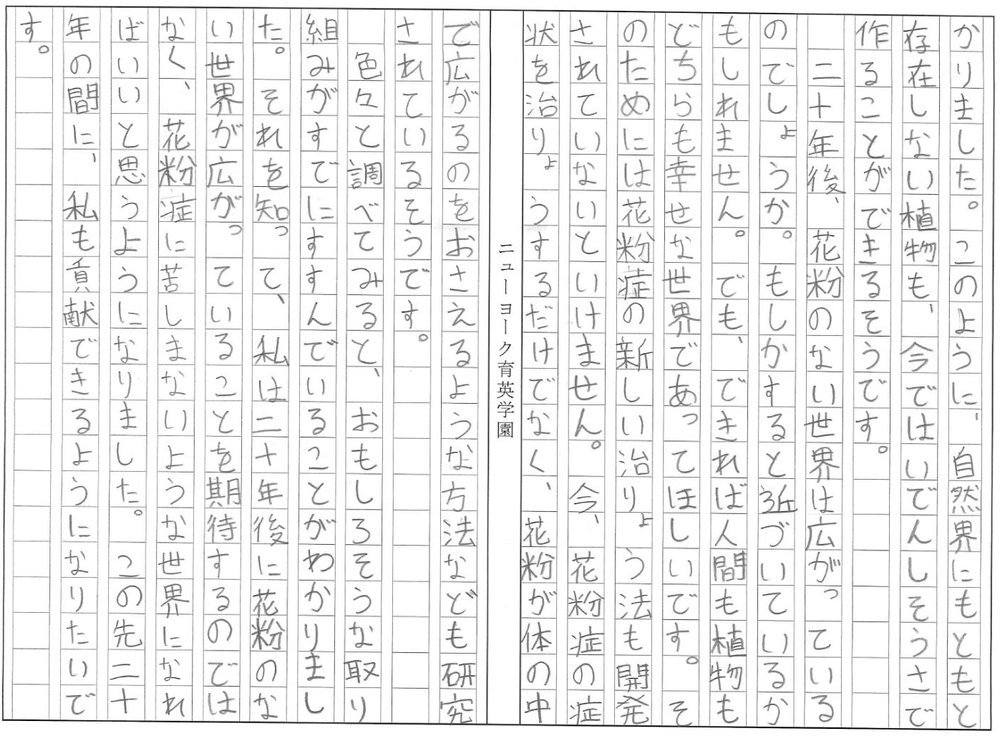 かりました。このように、自然界にもともと
存在しない植物も、今ではいでんしそうさで
作ることができるそうです。
二十年後、花粉のない世界は広がっている
のでしょうか。もしかすると近づいているか
もしれません。でも、できれば人間も植物も
どちらも幸せな世界であってほしいです。そ
のためには花粉症の新しい治りょう法も開発
されていないといけません。今、花粉症の症
状を治りょうするだけでなく、花粉が体の中
ニューヨーク育英学園
で広がるのをおさえるような方法なども研究
されているそうです。
色々と調べてみると、おもしろそうな取り
組みがすでにすすんでいることがわかりまし
た。それを知って、私は二十年後に花粉のな
い世界が広がっていることを期待するのでは
なく、花粉症に苦しまないような世界になれ
ばいいと思うようになりました。この先二十
年の間に、私も貢献できるようになりたいで
す。